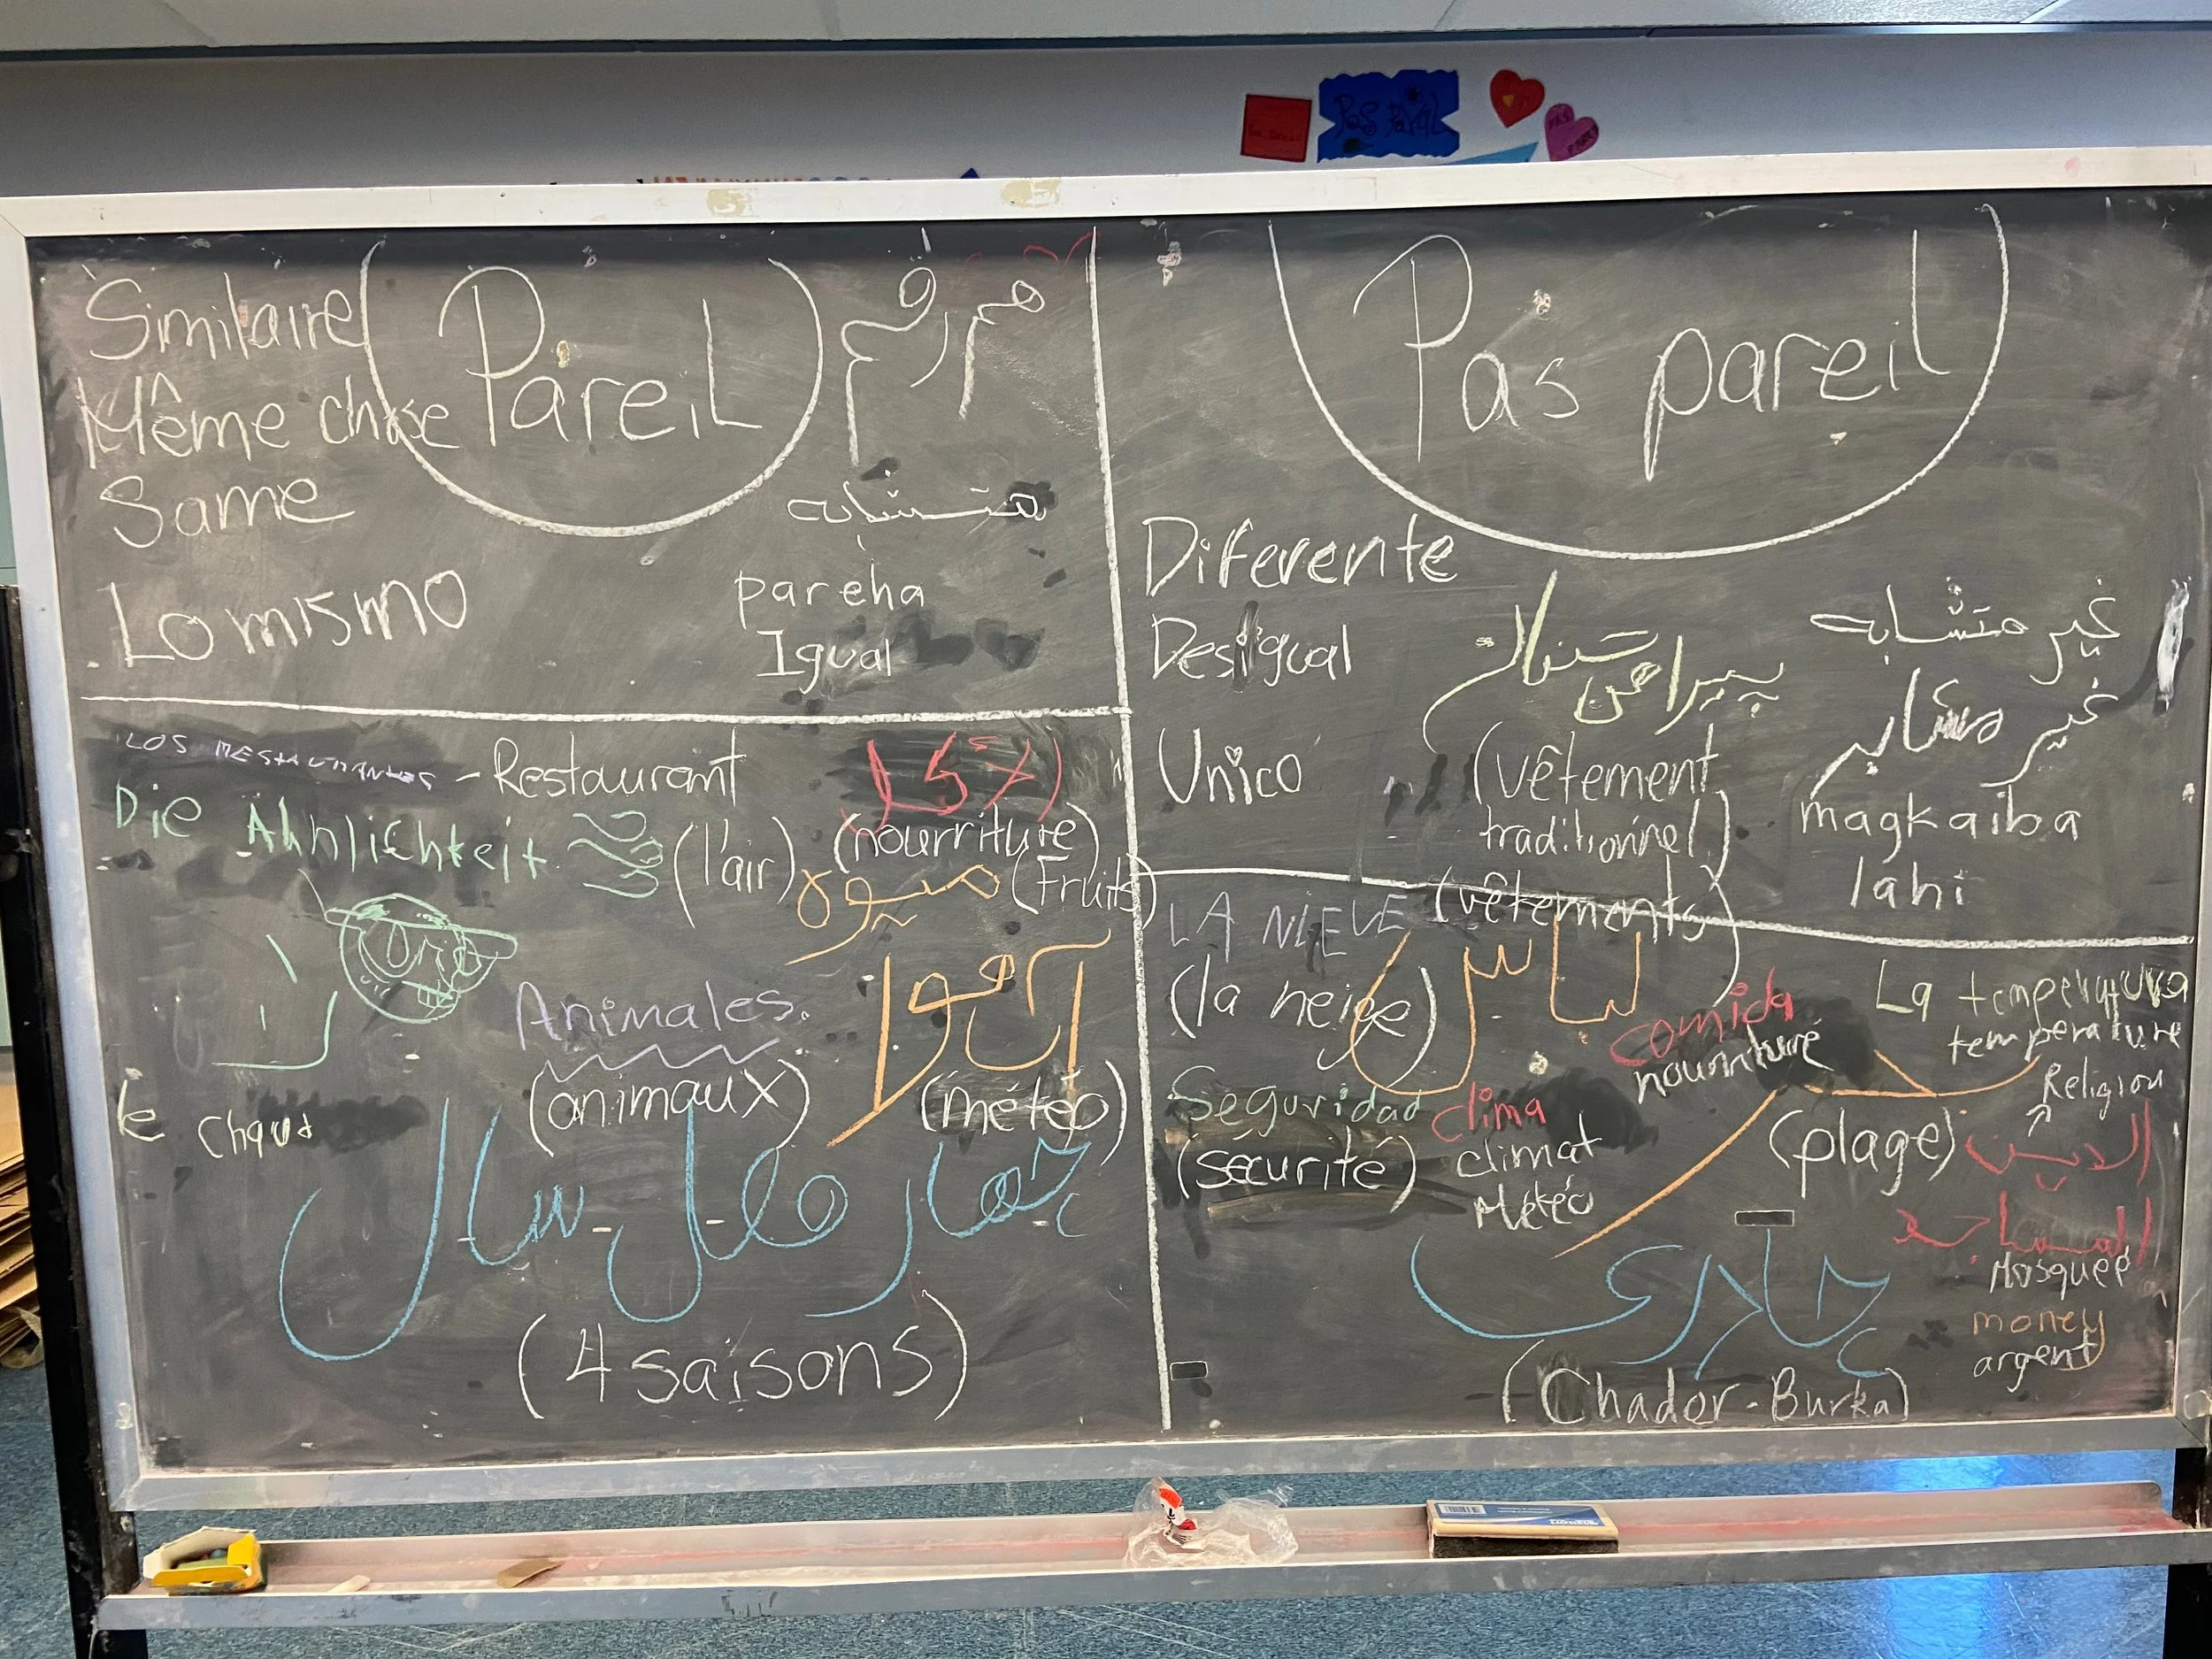 Pas Pareil
Pareil
Similaire
Même chose
Same
Lo mismo
متشابه
pareha
Igual
Pas pareil
Diferente
Desigual
Unico
پیراهن
(vêtement
traditionnel)
غير متشابه
غير مشابه
magkaiba
lahi
LOS RESTAURANTES - Restaurant
الأكل
(nourriture)
Die Ähnlichkeit
(l'air)
میوه (Fruits)
Animales.
(animaux)
آب و هوا
(météo)
le chaud
چهار فصل سال
(4 saisons)
LA NIEVE
(la neige)
(vêtements)
لباس
comida
nourriture
La temperatura
température
Seguridad
(sécurité)
clima
climat
Météo
(plage)
Religion
الدين
المساجد
Mosquée
money
argent
چادری
(Chador - Burka)